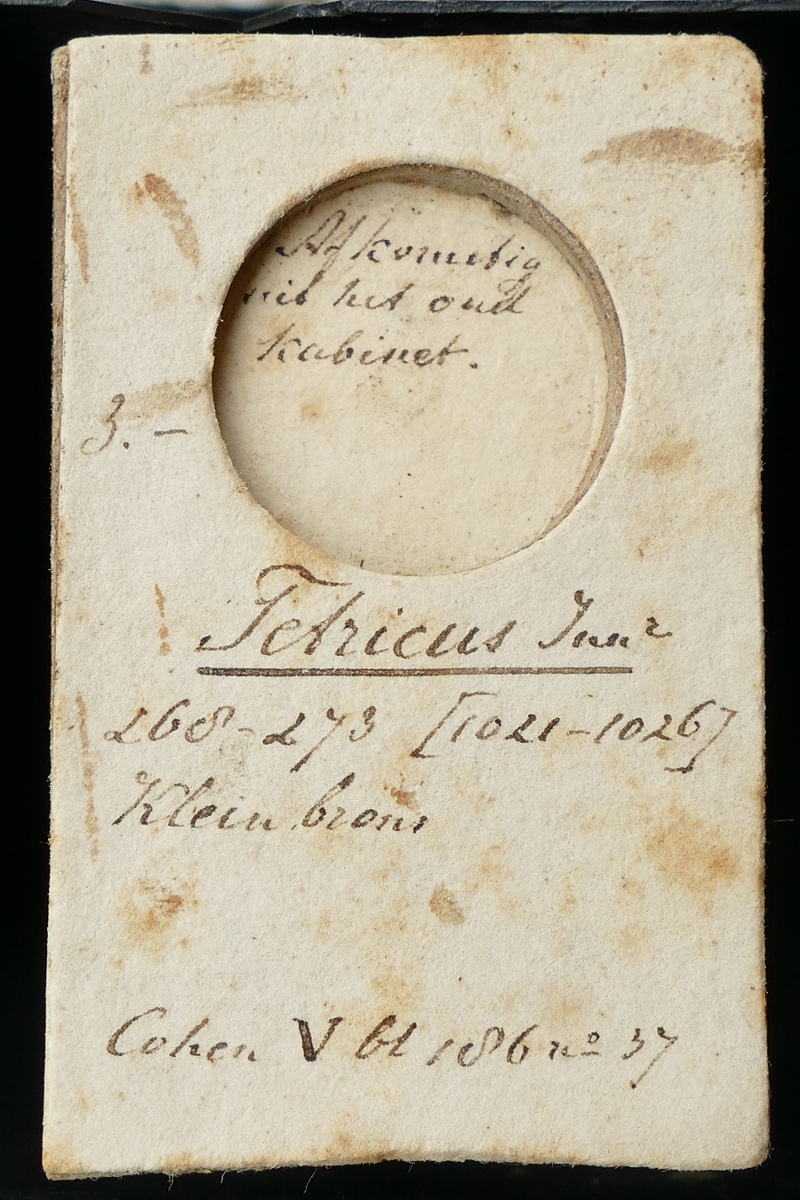 Afkomstig
uit het oud
kabinet.
3. –
Tetricus Junr
268–273 [1021–1026]
Klein brons
Cohen V bl 186 no 37